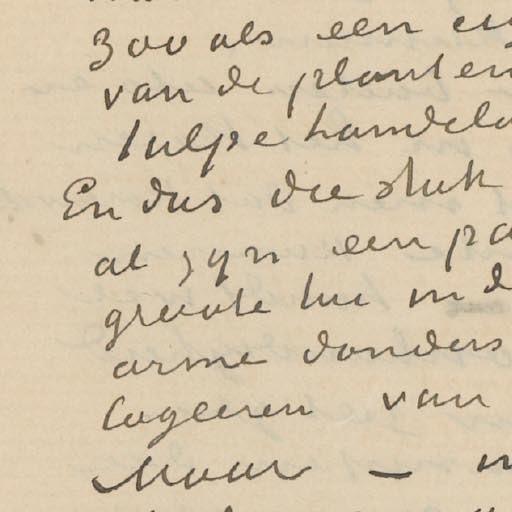 zoo als een
van de planten
tulpe handela
En dus die stuk
al zyn een pa
groote lui in d
arme donders
logeeren van
Maar –